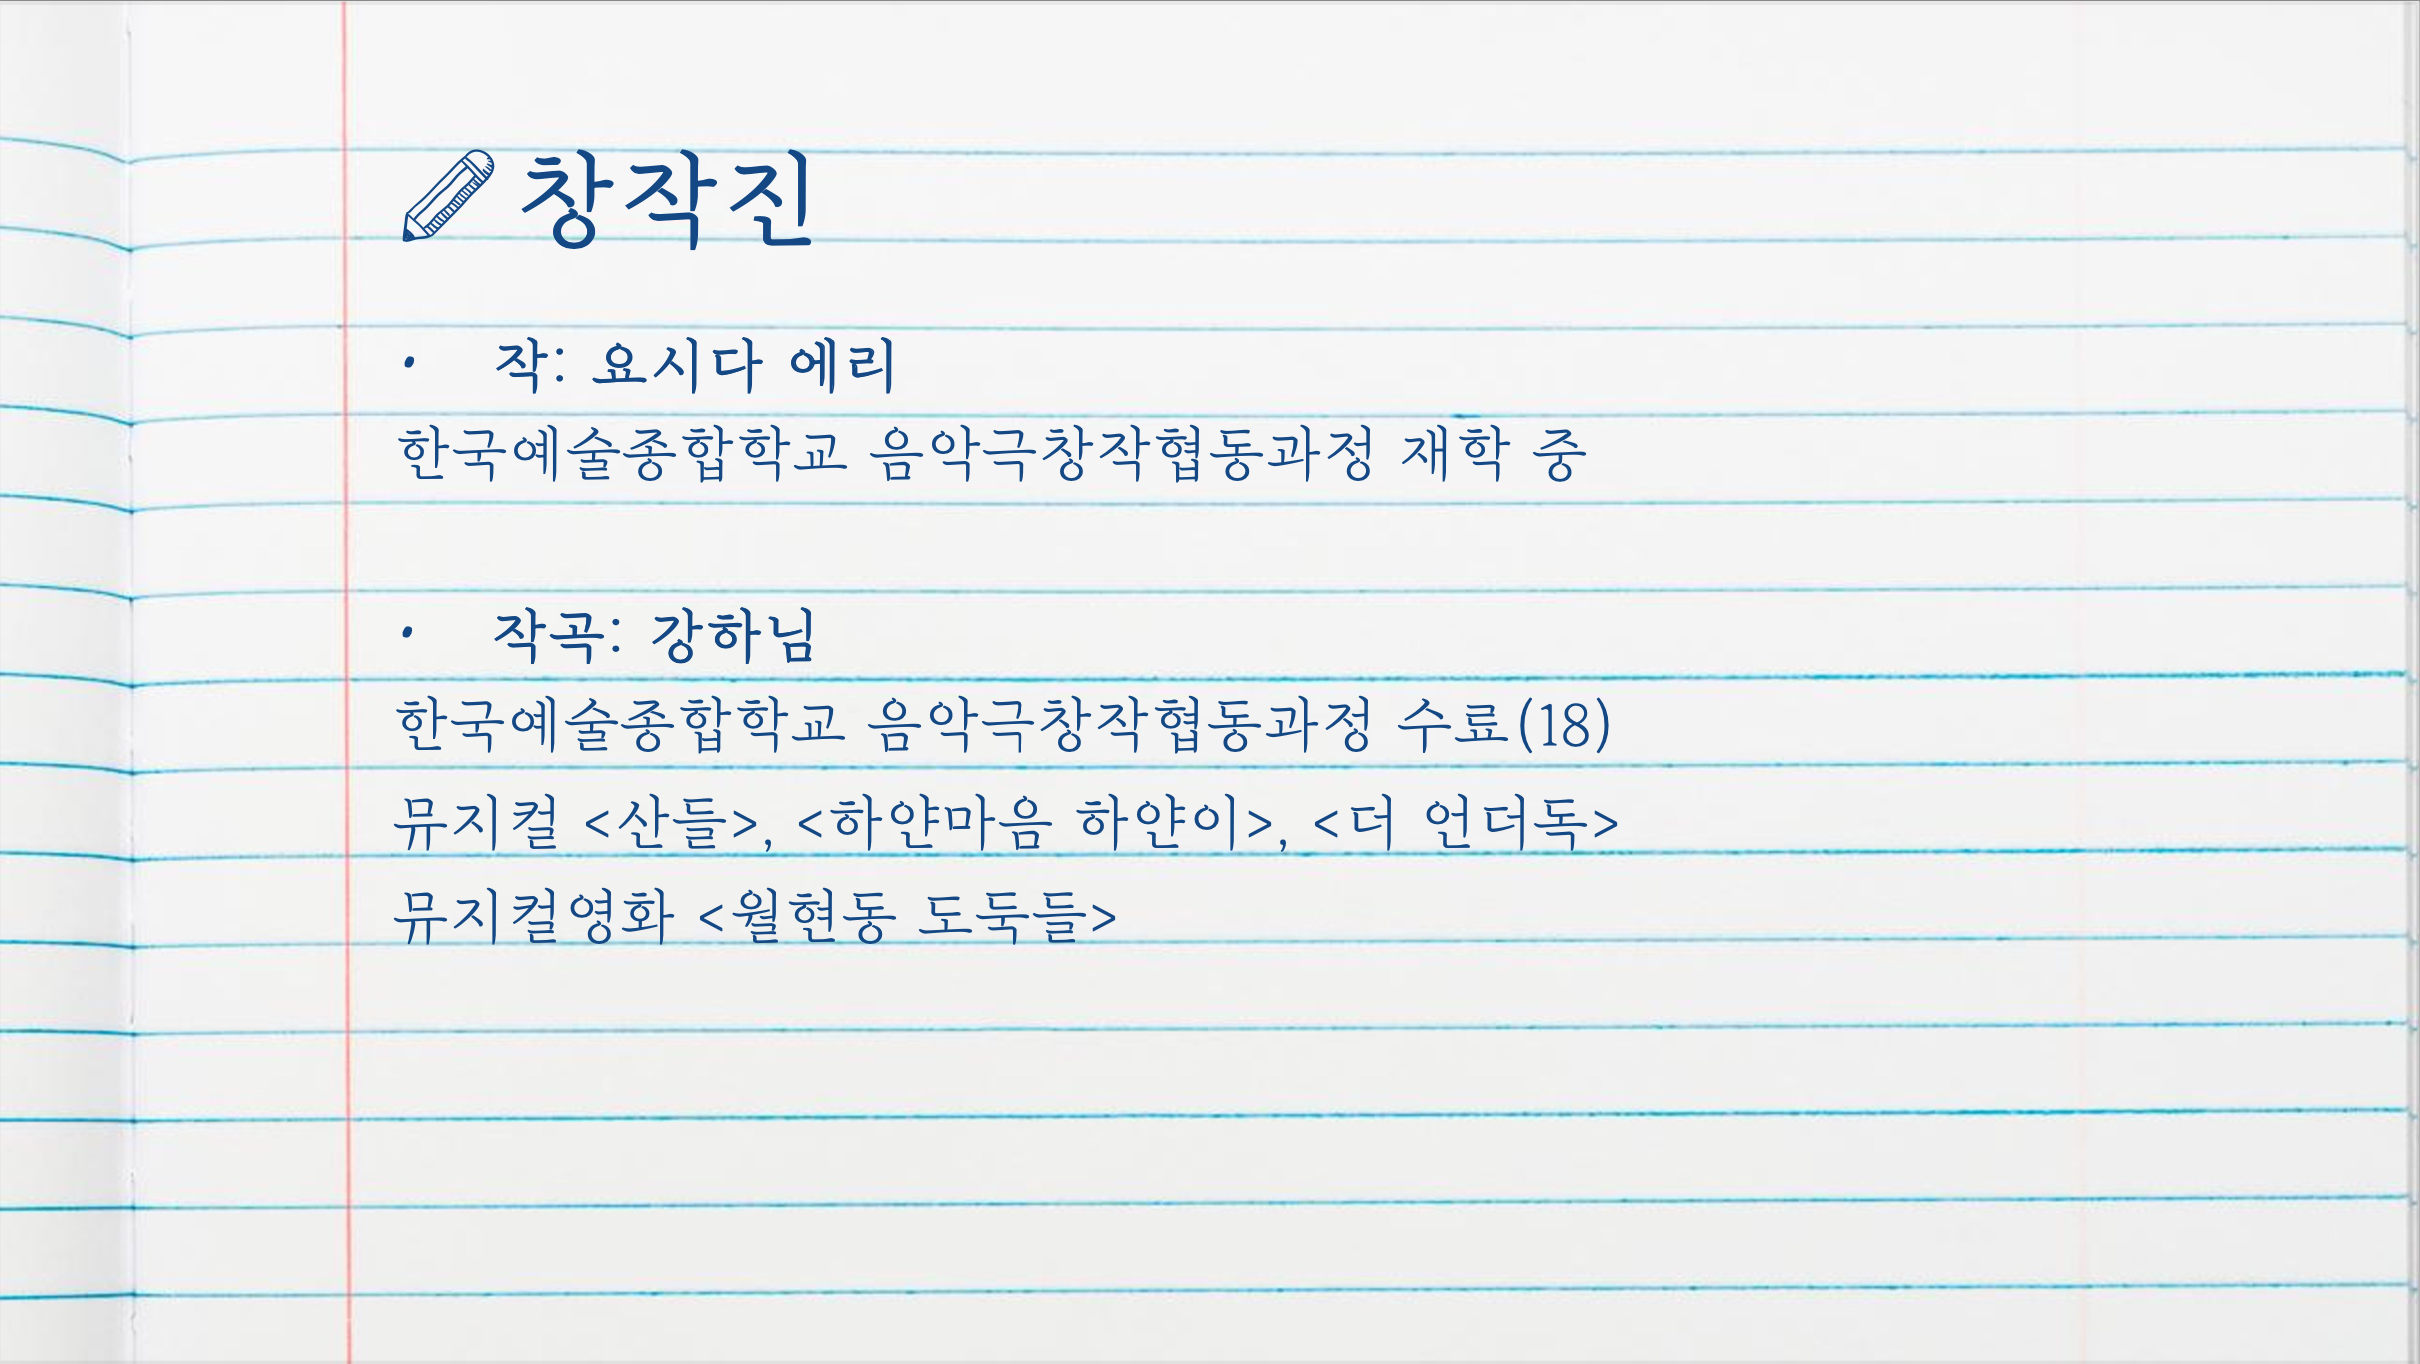 창작진
• 작: 요시다 에리
한국예술종합학교 음악극창작협동과정 재학 중
• 작곡: 강하님
한국예술종합학교 음악극창작협동과정 수료(18)
뮤지컬 <산들>, <하얀마음 하얀이>, <더 언더독>
뮤지컬영화 <월현동 도둑들>